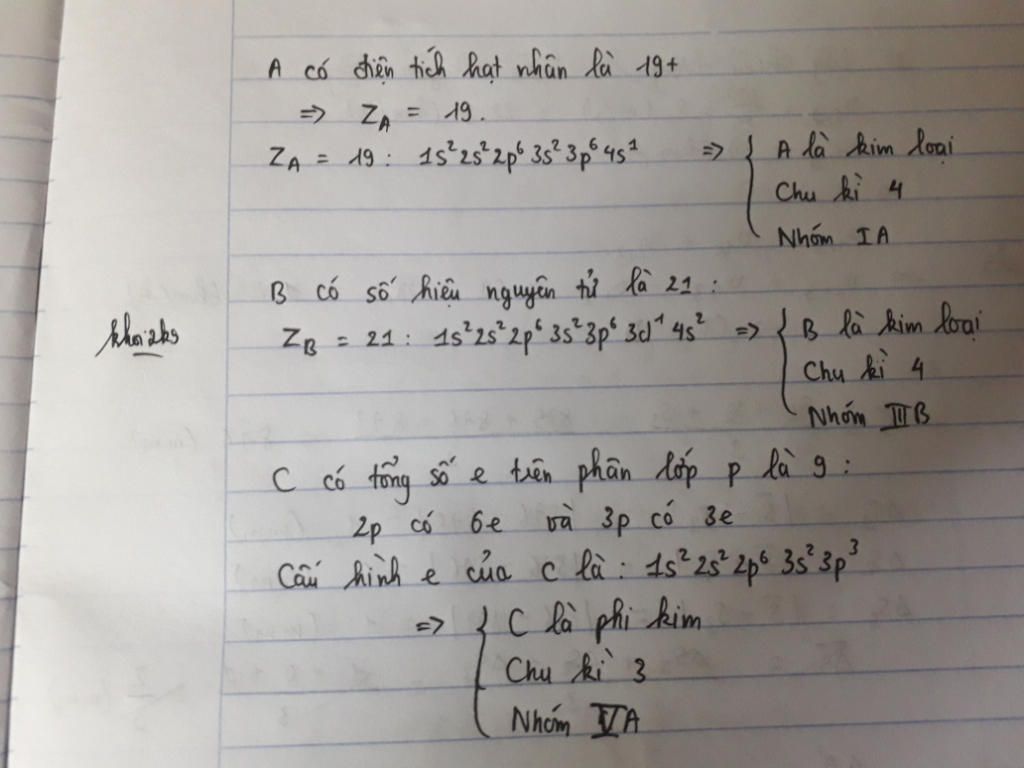 A có điện tích hạt nhân là 19+
=> Z_A = 19.
Z_A = 19 : 1s² 2s² 2p⁶ 3s² 3p⁶ 4s¹ => { A là kim loại
Chu kì 4
Nhóm IA
B có số hiệu nguyên tử là 21 :
khoi2ks
Z_B = 21 : 1s² 2s² 2p⁶ 3s² 3p⁶ 3d¹ 4s² => { B là kim loại
Chu kì 4
Nhóm IIIB
C có tổng số e trên phân lớp p là 9 :
2p có 6e và 3p có 3e
Cấu hình e của C là : 1s² 2s² 2p⁶ 3s² 3p³
=> { C là phi kim
Chu kì 3
Nhóm VA